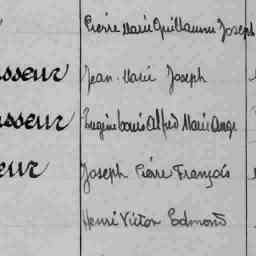 Pierre Marie Guillaume Joseph
sseur Jean-Marie Joseph
sseur Eugène Louis Alfred Marie Ange
eur Joseph Pierre François
Henri Victor Edmond